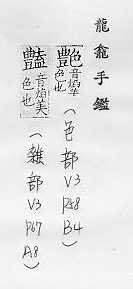 龍龕手鑑
艷音焰美色也(色部V3P48B4)
豔音焰美色也(雜部V3P67A8)